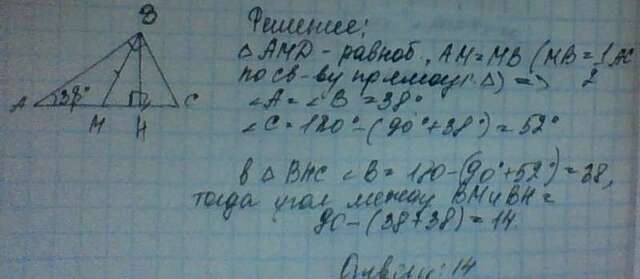 В
Решение:
△ AMD - равноб., AM = MB (MB = 1/2 AC
по св-ву прямоуг. △) =>
∠A = ∠B = 38°
∠C = 180° - (90° + 38°) = 52°
A 38° C
M H
В △ BHC ∠B = 180 - (90° + 52°) = 38,
тогда угол между BM и BH =
90 - (38 + 38) = 14.
Ответ: 14